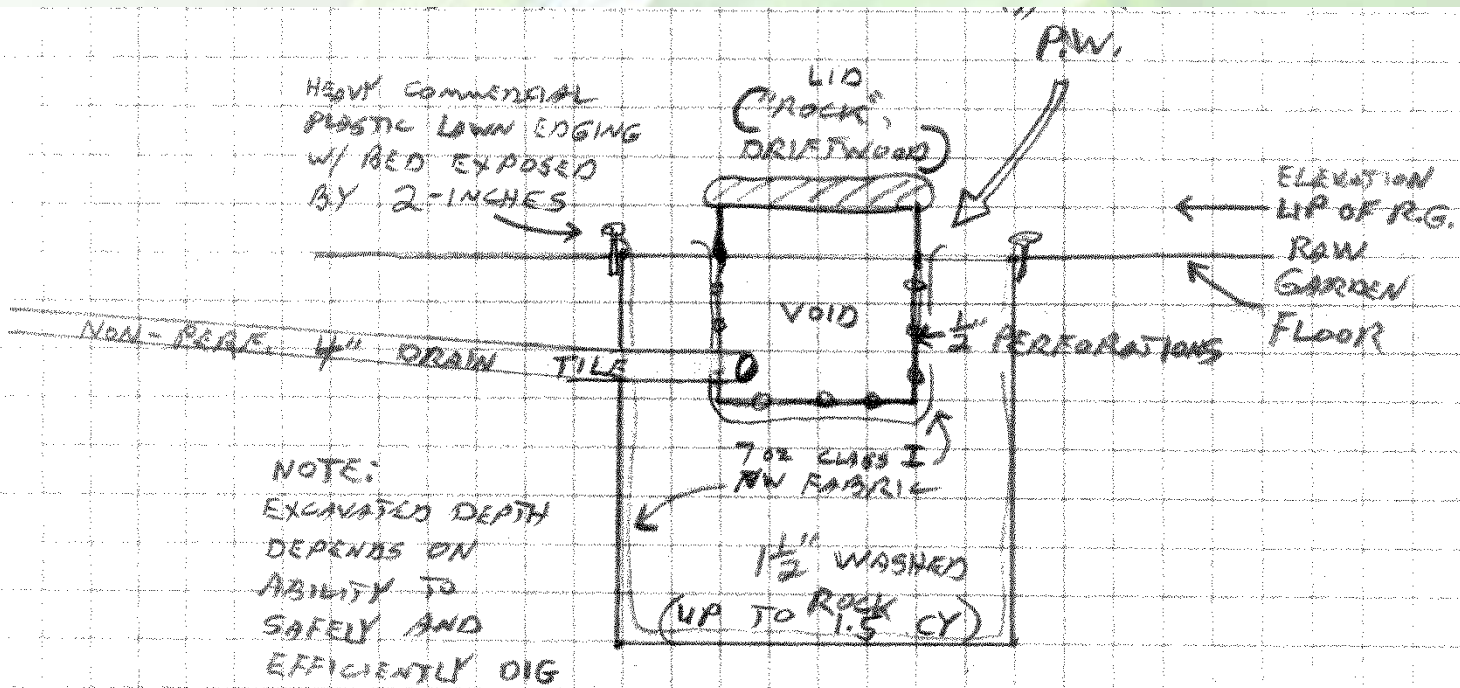 P.W.
HEAVY COMMERCIAL
PLASTIC LAWN EDGING
W/ BED EXPOSED
BY 2-INCHES
LID
("ROCK",
DRIFTWOOD)
ELEVATION
LIP OF R.G.
RAW
GARDEN
FLOOR
VOID
1/2" PERFORATIONS
NON-PERF. 4" DRAIN TILE
7 oz CLASS I
NW FABRIC
NOTE:
EXCAVATED DEPTH
DEPENDS ON
ABILITY TO
SAFELY AND
EFFICIENTLY DIG
1 1/2" WASHED
ROCK
(UP TO 1.5 CY)